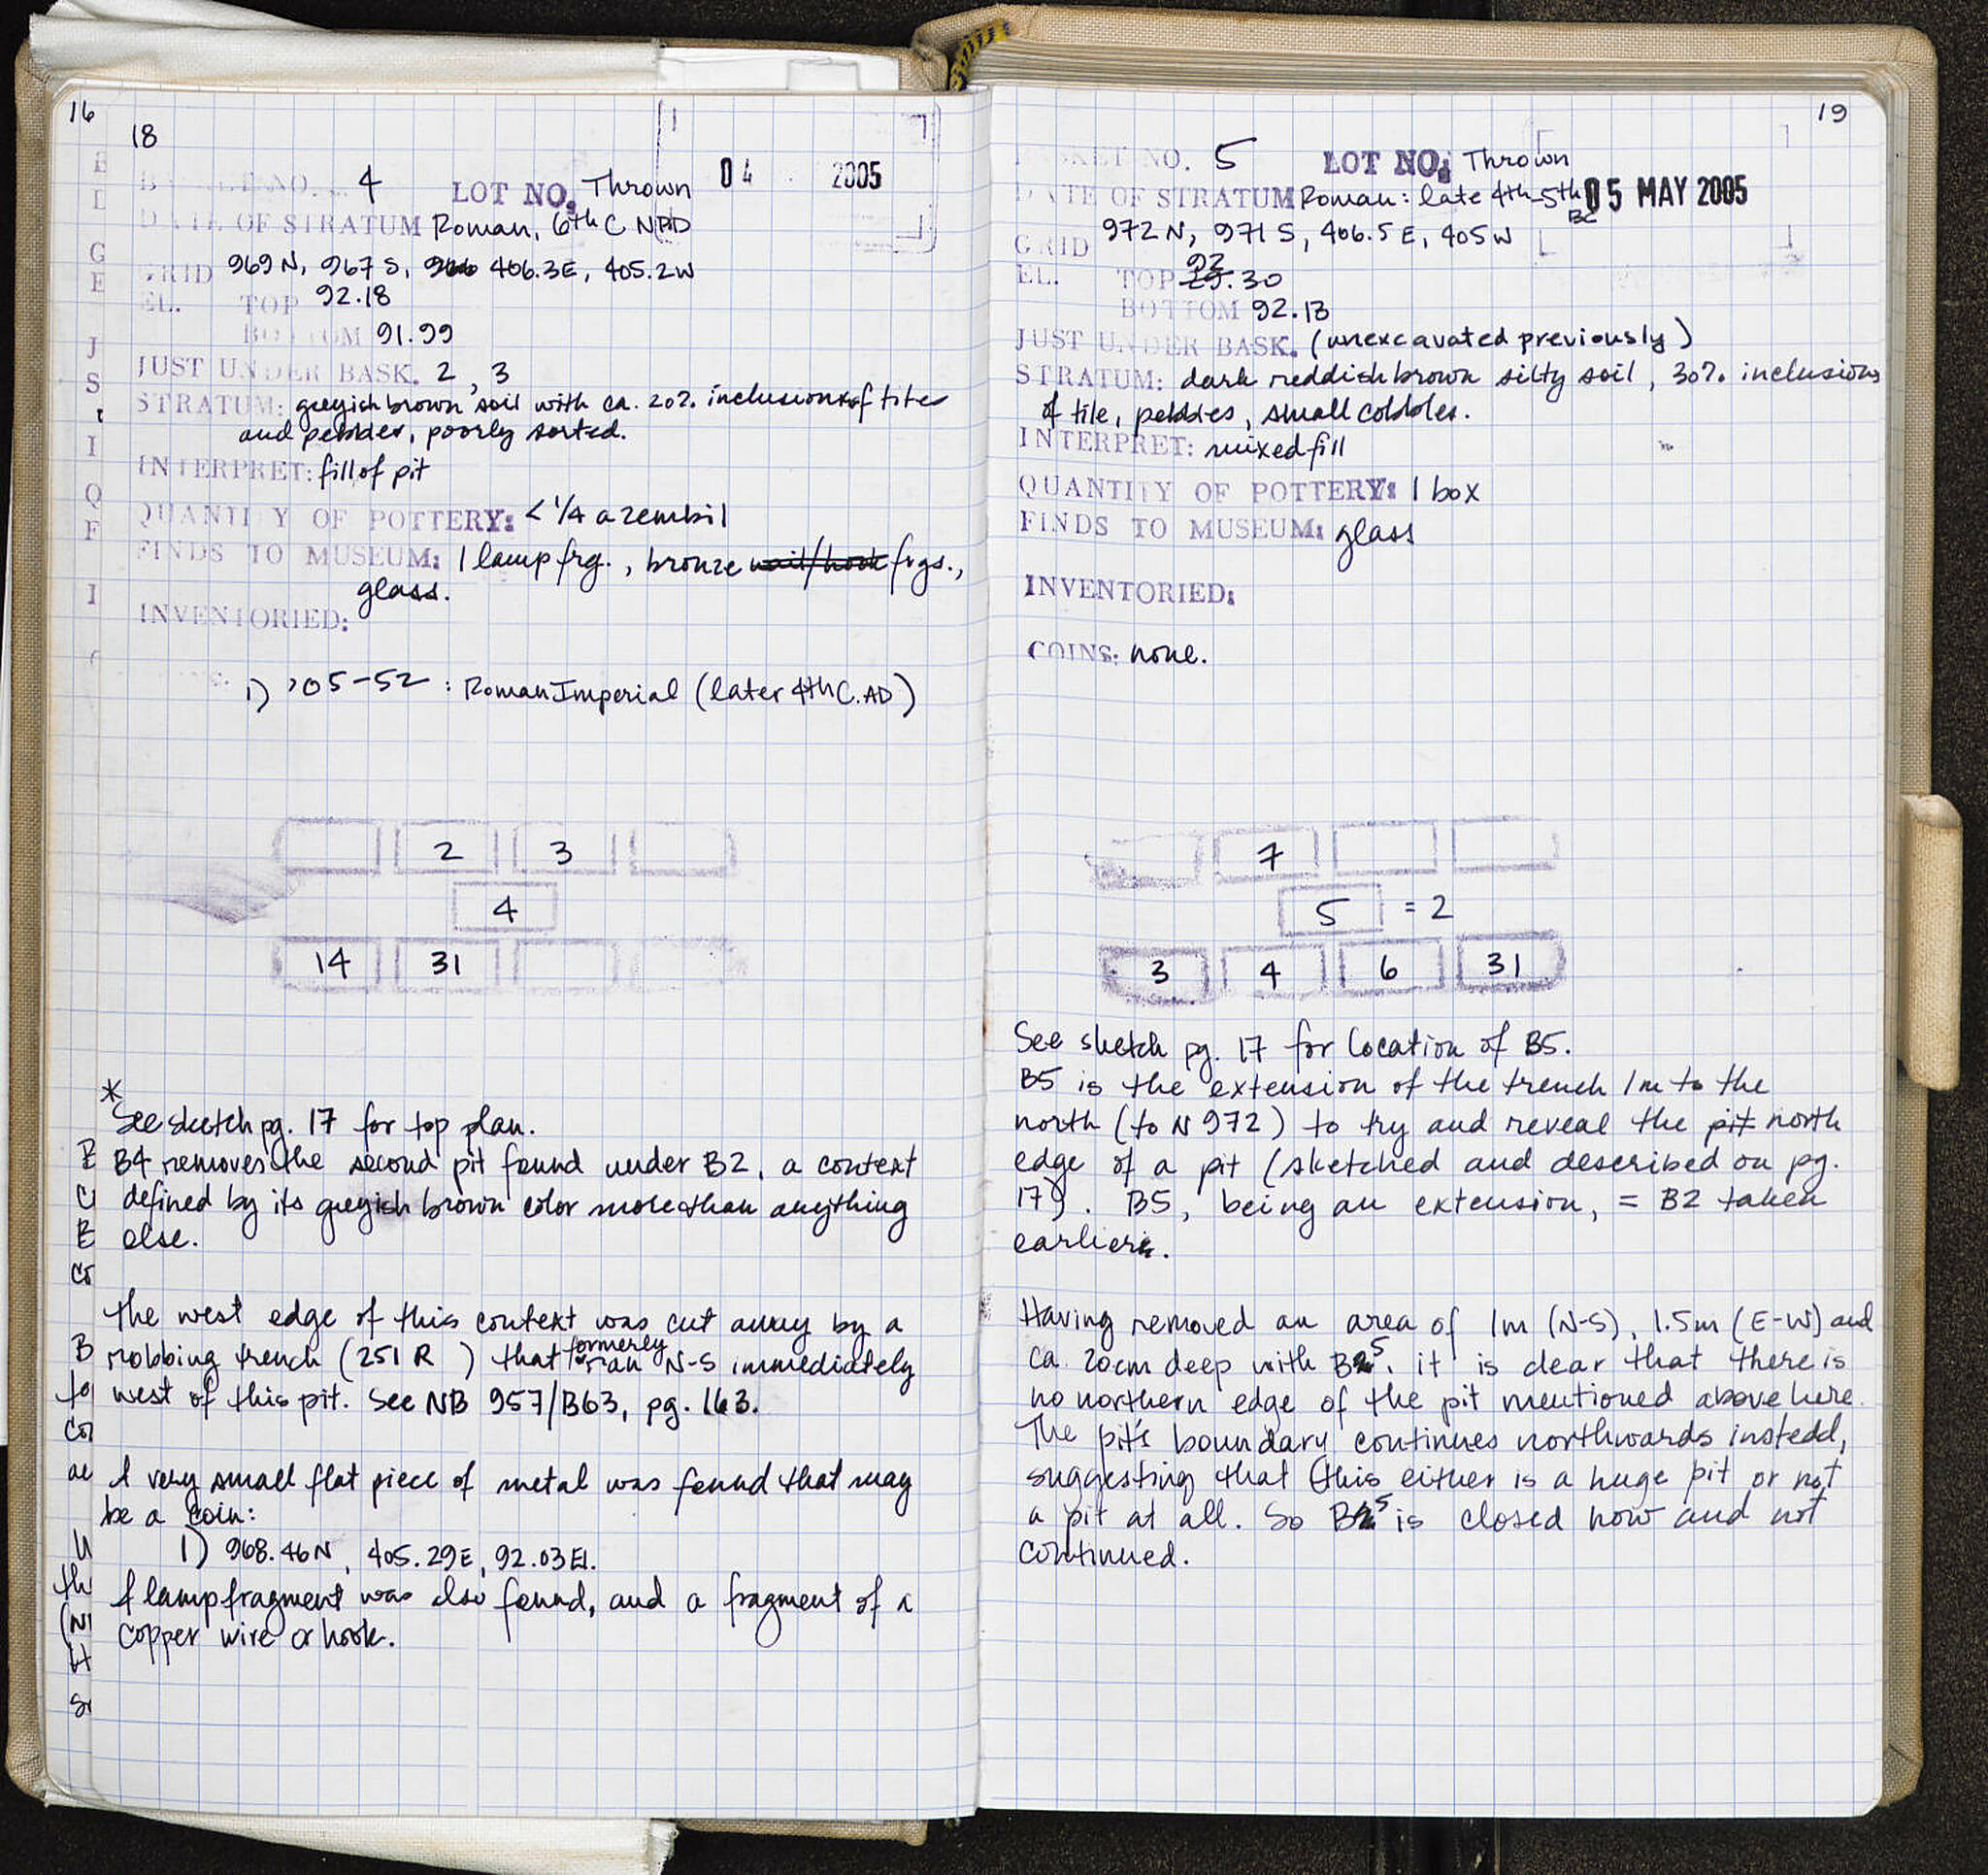 16
18
BASKET NO. 4 LOT NO. Thrown 04 2005
DATE OF STRATUM Roman, 6th C NPD
GRID 969 N, 967 S, 406.3E, 405.2W
EL. TOP 92.18
BOTTOM 91.99
JUST UNDER BASK. 2, 3
STRATUM: greyish brown soil with ca. 20% inclusions of tiles
and pebbles, poorly sorted.
INTERPRET: fill of pit
QUANTITY OF POTTERY: < 1/4 a zembil
FINDS TO MUSEUM: 1 lamp frg., bronze nail/hook frgs.,
glass.
INVENTORIED:
1) '05-52 : Roman Imperial (later 4th C. AD)
2 3
4
14 31
*
See sketch pg. 17 for top plan.
B4 removes the second pit found under B2, a context
defined by its greyish brown color more than anything
else.
The west edge of this context was cut away by a
robbing trench (251 R ) that formerly ran N-S immediately
west of this pit. See NB 957/B63, pg. 163.
A very small flat piece of metal was found that may
be a coin:
1) 968.46N, 405.29E, 92.03 El.
A lamp fragment was also found, and a fragment of a
copper wire or hook.
19
BASKET NO. 5 LOT NO. Thrown
DATE OF STRATUM Roman: late 4th-5th 05 MAY 2005
BC
GRID 972 N, 971 S, 406.5 E, 405 W
EL. TOP 92.30
BOTTOM 92.13
JUST UNDER BASK. (unexcavated previously)
STRATUM: dark reddish brown silty soil, 30% inclusions
of tile, pebbles, small cobbles.
INTERPRET: mixed fill
QUANTITY OF POTTERY: 1 box
FINDS TO MUSEUM: glass
INVENTORIED:
COINS: none.
7
5 = 2
3 4 6 31
See sketch pg. 17 for location of B5.
B5 is the extension of the trench 1m to the
north (to N 972) to try and reveal the pit north
edge of a pit (sketched and described on pg.
17). B5, being an extension, = B2 taken
earlier.
Having removed an area of 1m (N-S), 1.5m (E-W) and
ca. 20cm deep with B5, it is clear that there is
no northern edge of the pit mentioned above here.
The pit's boundary continues northwards instead,
suggesting that this either is a huge pit or not
a pit at all. So B5 is closed now and not
continued.